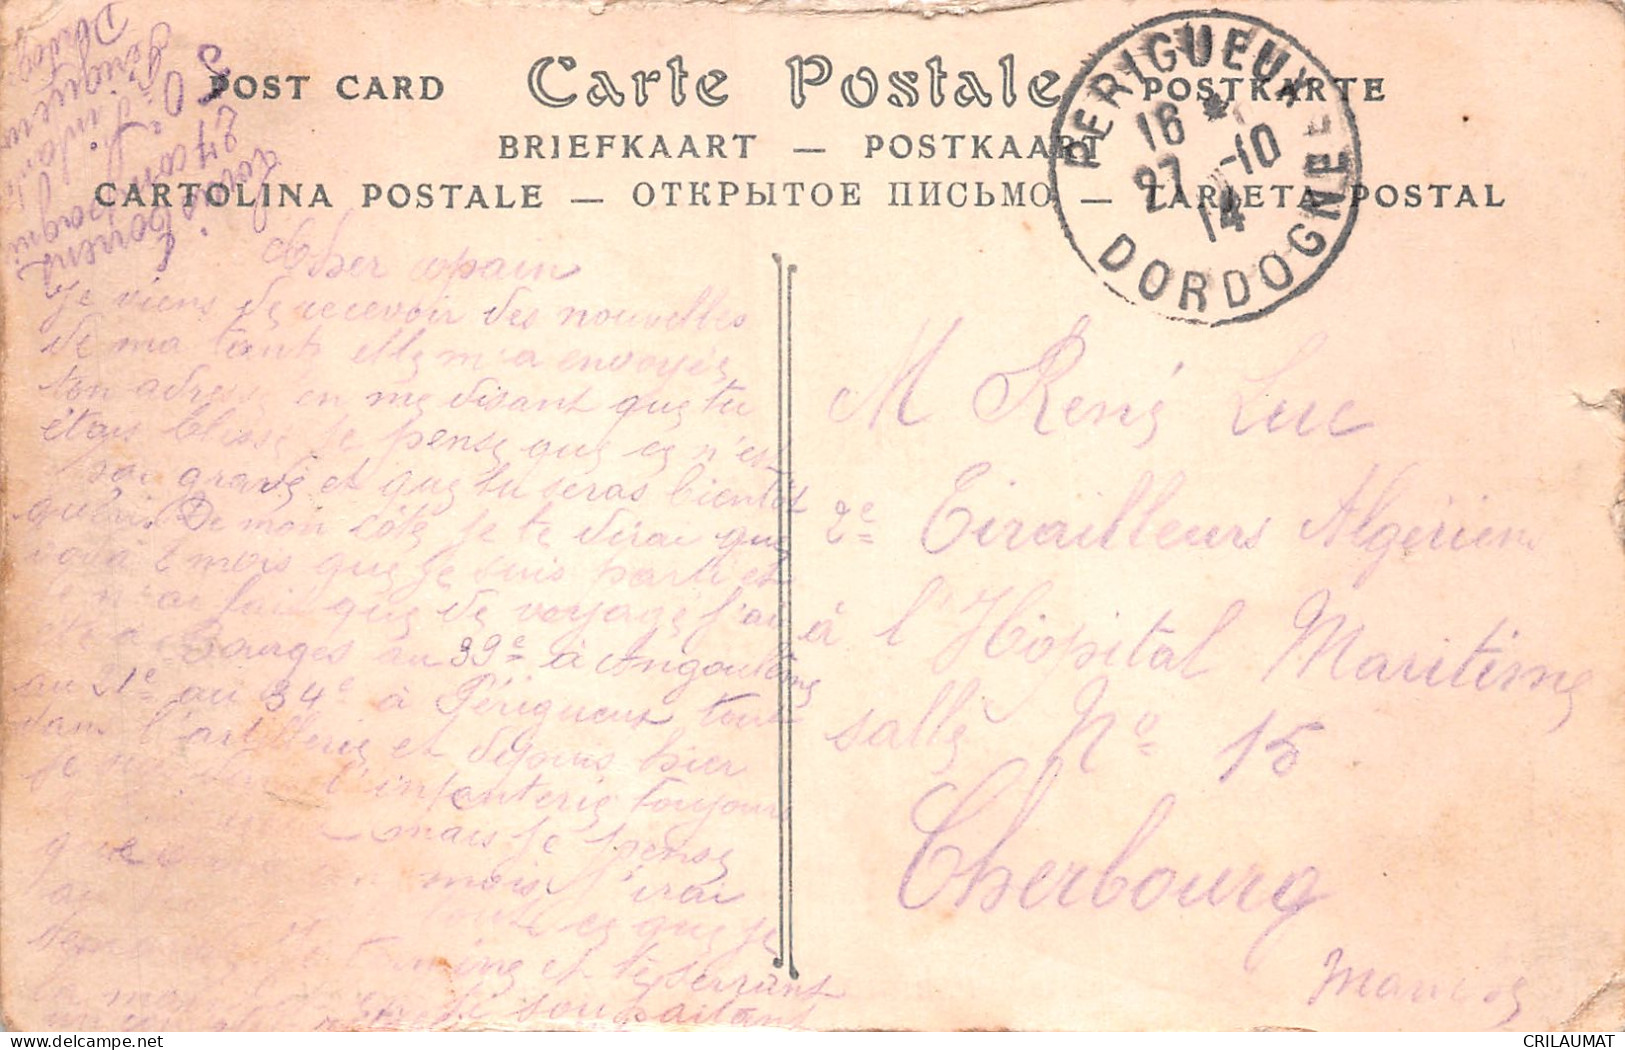 POST CARD Carte Postale POSTKARTE
BRIEFKAART — POSTKAART
CARTOLINA POSTALE — ОТКРЫТОЕ ПИСЬМО — TARJETA POSTAL
PERIGUEUX
16 * 27 -10 14
DORDOGNE
50e d'infanterie
24 compagnie
Périgueux
Dordog
Cher copain
Je viens de recevoir des nouvelles
de ma tante elle m'a envoyés
ton adresse en me disant que tu
étais blessé je pense que ce n'est
pas grave et que tu seras bientôt
guéris De mon côté je te dirai que
voilà 2 mois que je suis parti et
je n'ai fait que de voyagé j'ai
été a Bourges au 39e à Angoulême
au 21e au 34e à Périgueux tout
dans l'artillerie et depuis hier
je suis dans l'infanterie toujours
mais je pense
que mois j'irai
au toute ce que je
termine et te serrant
la main te souhaitant
M René Luc
2e Tirailleurs Algériens
à l'Hôpital Maritime
salle No 15
Cherbourg
Manche
CRILAUMAT